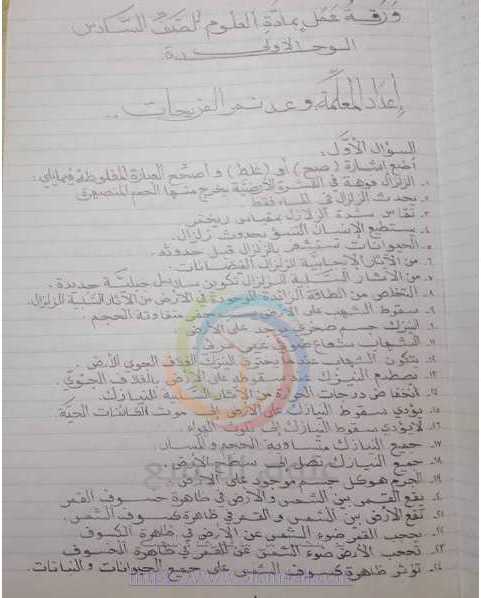 ورقة عمل بمادة العلوم للصف السادس
الوحدة الأولى
إعداد المعلمة: وعد نمر الفريحات
السؤال الأول:
أضع إشارة (صح) أو (غلط) وأصحح العبارة المغلوطة فيما يلي:
١- الزلزال فوهة في القشرة الأرضية يخرج منها الحمم المنصهرة
٢- يحدث الزلزال في الماء فقط
٣- تقاس شدة الزلازل بمقياس ريختر
٤- يستطيع الإنسان التنبؤ بحدوث زلزال.
٥- الحيوانات تستشعر بالزلزال قبل حدوثه.
٦- من الآثار الإيجابية للزلزال الفيضانات.
٧- من الآثار السلبية للزلزال تكوين سلاسل جبلية جديدة.
٨- التخلص من الطاقة الزائدة الموجودة في الأرض من الآثار السلبية للزلزال.
٩- سقوط الشهب على الأرض حفر متفاوتة الحجم
١٠- النيزك جسم صخري على الأرض
١١- الشهاب شعاع ضوئي
١٢- يتكون الشهاب عندما يحترق النيزك الغلاف الجوي الأرضي.
١٣- يصطدم النيزك عند سقوطه على الأرض بالغلاف الجوي.
١٤- انخفاض درجات الحرارة من الآثار للنيازك.
١٥- يؤدي سقوط النيازك على الأرض إلى موت الكائنات الحية.
١٦- لا يؤدي سقوط النيازك إلى تلوث الهواء.
١٧- جميع النيازك متساوية الحجم والمسار.
١٨- جميع النيازك تصل إلى سطح الأرض.
١٩- الجرم هو كل جسم موجود على الأرض.
٢٠- يقع القمر بين الشمس والأرض في ظاهرة خسوف القمر
٢١- تقع الأرض بين الشمس والقمر في ظاهرة كسوف الشمس.
٢٢- يحجب القمر ضوء الشمس عن الأرض في ظاهرة الكسوف
٢٣- تحجب الأرض ضوء الشمس عن القمر في ظاهرة الخسوف
٢٤- تؤثر ظاهرة كسوف الشمس على جميع الحيوانات والنباتات.